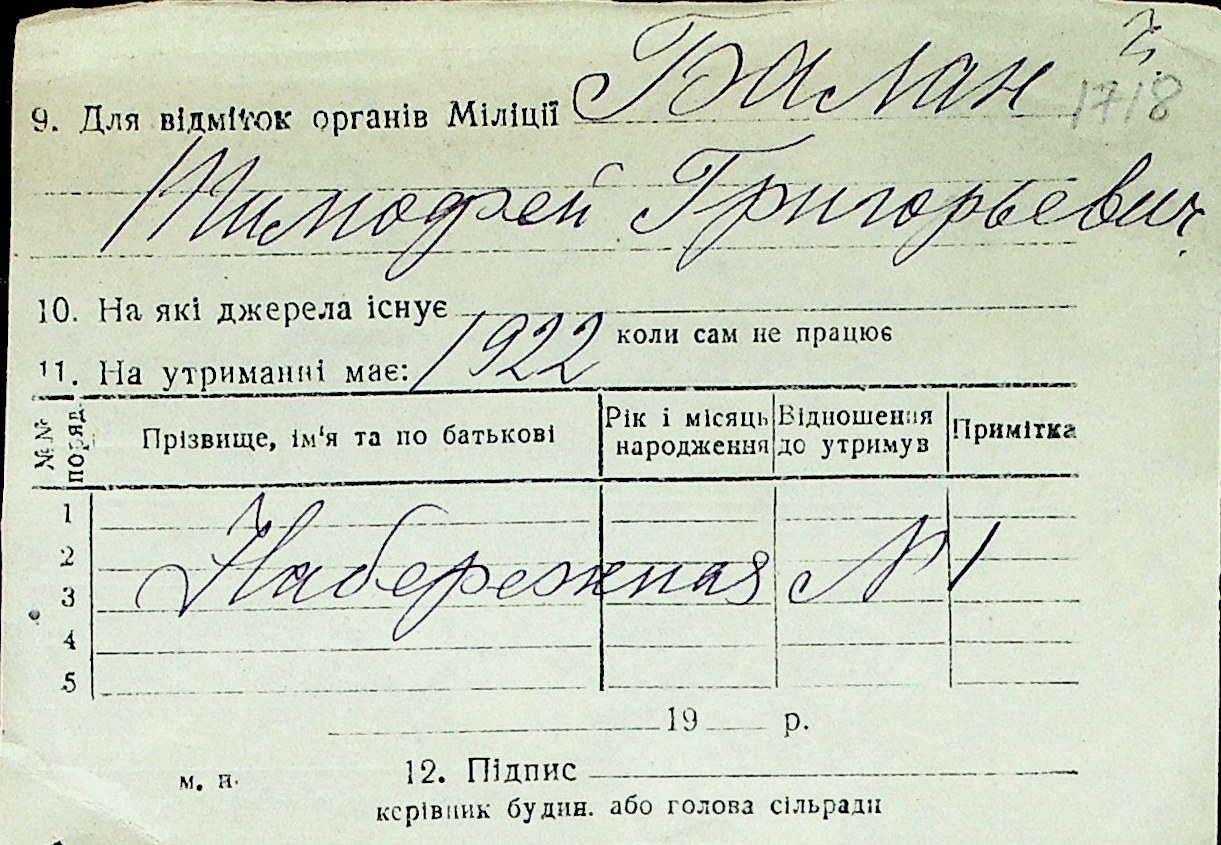 9. Для відміток органів Міліції Балан 1718
Тимофей Григорьевич
10. На які джерела існує
коли сам не працює
11. На утриманні має: 1922
№№ поряд.
Прізвище, ім'я та по батькові
Рік і місяць народження
Відношення до утримув
Примітка
1
2
Набережная № 1
3
4
5
19 р.
м. п.
12. Підпис
керівник будин. або голова сільради